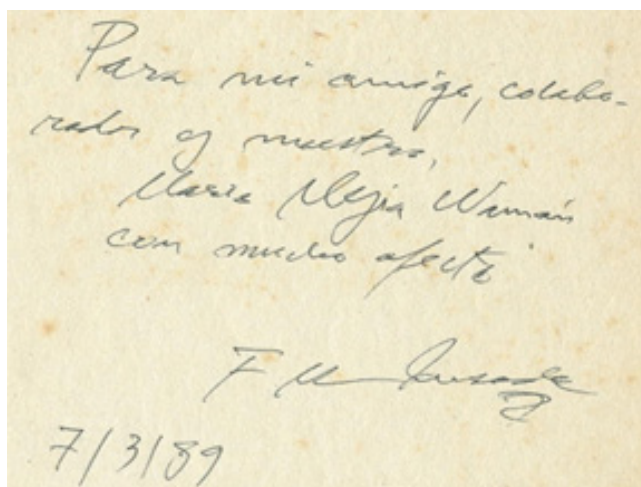 Para mi amigo, colabo-
rador y maestro,
Mario Mejía Waman
con mucho afecto
F
7/3/89